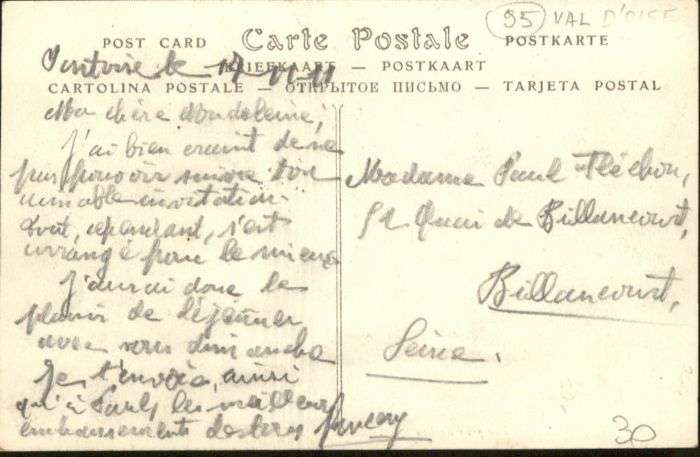 95 VAL D'OISE
POST CARD Carte Postale POSTKARTE
BRIEFKAART — POSTKAART
CARTOLINA POSTALE — ОТКРЫТОЕ ПИСЬМО — TARJETA POSTAL
Pontoise le 17
Ma chère Madeleine,
J'ai bien craint de ne
pas pouvoir suivre ton
aimable invitation.
Tout, cependant, s'est
arrangé pour le mieux
J'aurai donc le
plaisir de déjeuner
avec vous dimanche
Je t'envoie, ainsi
qu'à Paul, les meilleurs
embrassements de
Madame Paul Fléchon,
52 Quai de Billancourt,
Billancourt,
Seine.
30